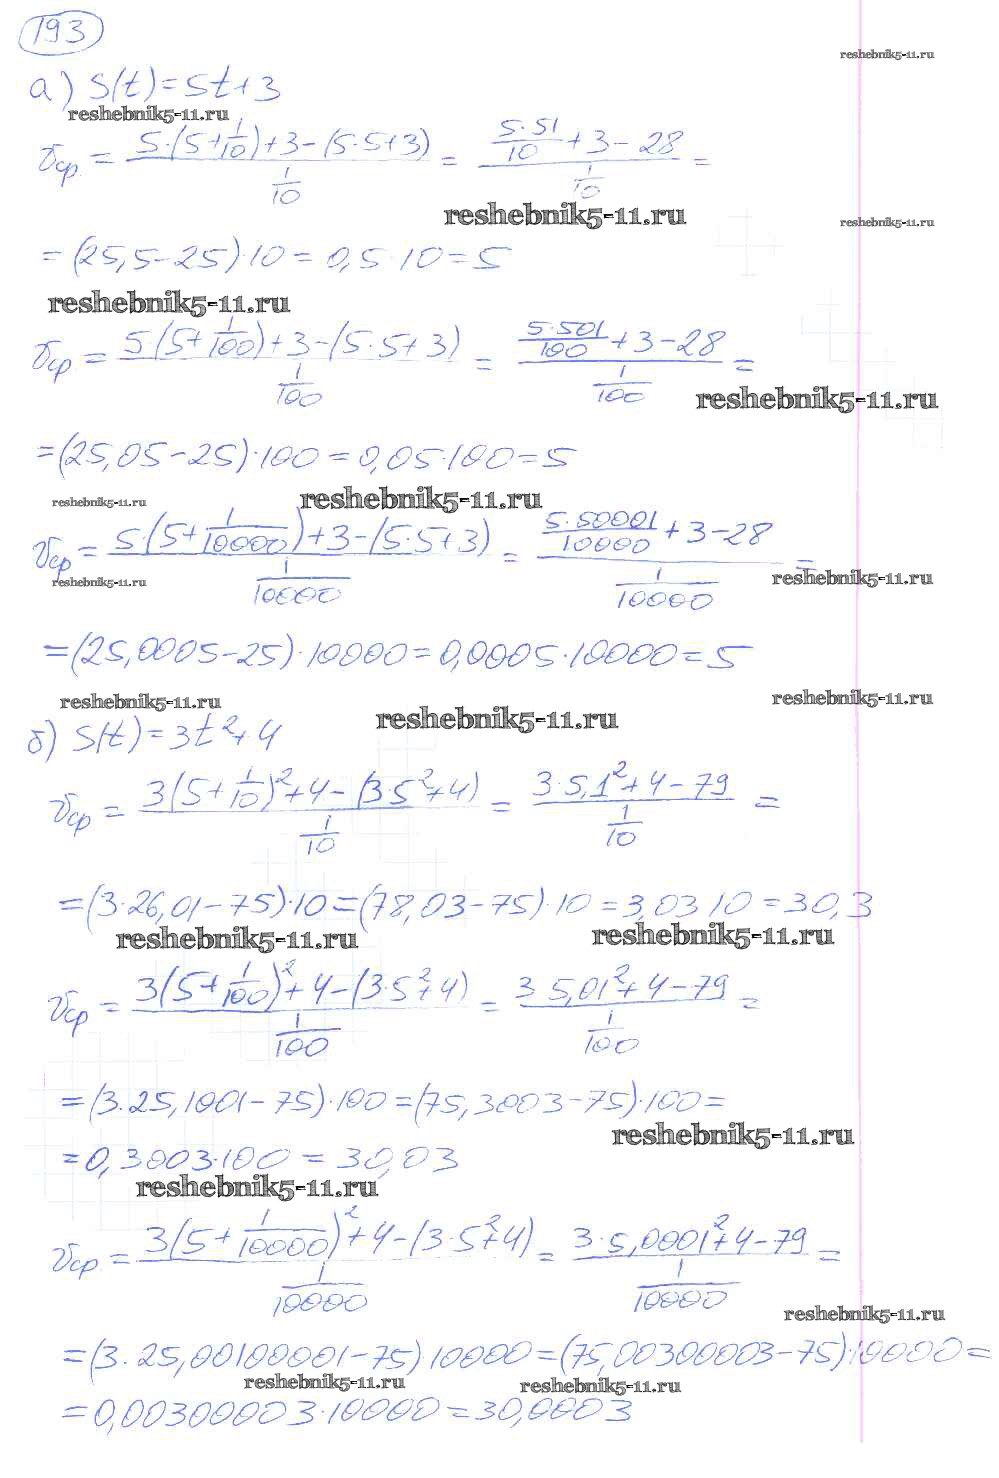 193
reshebnik5-11.ru
а) S(t)=5t+3
reshebnik5-11.ru
υср. = (5·(5+1/10)+3-(5·5+3))/(1/10) = (5·51/10+3-28)/(1/10) =
reshebnik5-11.ru
reshebnik5-11.ru
=(25,5-25)·10=0,5·10=5
reshebnik5-11.ru
υср = (5(5+1/100)+3-(5·5+3))/(1/100) = (5·501/100+3-28)/(1/100) =
reshebnik5-11.ru
=(25,05-25)·100=0,05·100=5
reshebnik5-11.ru reshebnik5-11.ru
υср = (5·(5+1/10000)+3-(5·5+3))/(1/10000) = (5·50001/10000+3-28)/(1/10000) =
reshebnik5-11.ru reshebnik5-11.ru
=(25,0005-25)·10000=0,0005·10000=5
reshebnik5-11.ru reshebnik5-11.ru reshebnik5-11.ru
б) S(t)=3t²+4
υср = (3(5+1/10)²+4-(3·5²+4))/(1/10) = (3·5,1²+4-79)/(1/10) =
=(3·26,01-75)·10=(78,03-75)·10=3,03 10=30,3
reshebnik5-11.ru reshebnik5-11.ru
υср = (3(5+1/100)²+4-(3·5²+4))/(1/100) = (3 5,01²+4-79)/(1/100) =
=(3·25,1001-75)·100=(75,3003-75)·100=
reshebnik5-11.ru
=0,3003·100=30,03
reshebnik5-11.ru
υср = (3(5+1/10000)²+4-(3·5²+4))/(1/10000) = (3·5,0001²+4-79)/(1/10000) =
reshebnik5-11.ru
=(3·25,00100001-75)10000=(75,00300003-75)·10000=
reshebnik5-11.ru reshebnik5-11.ru
=0,00300003·10000=30,0003